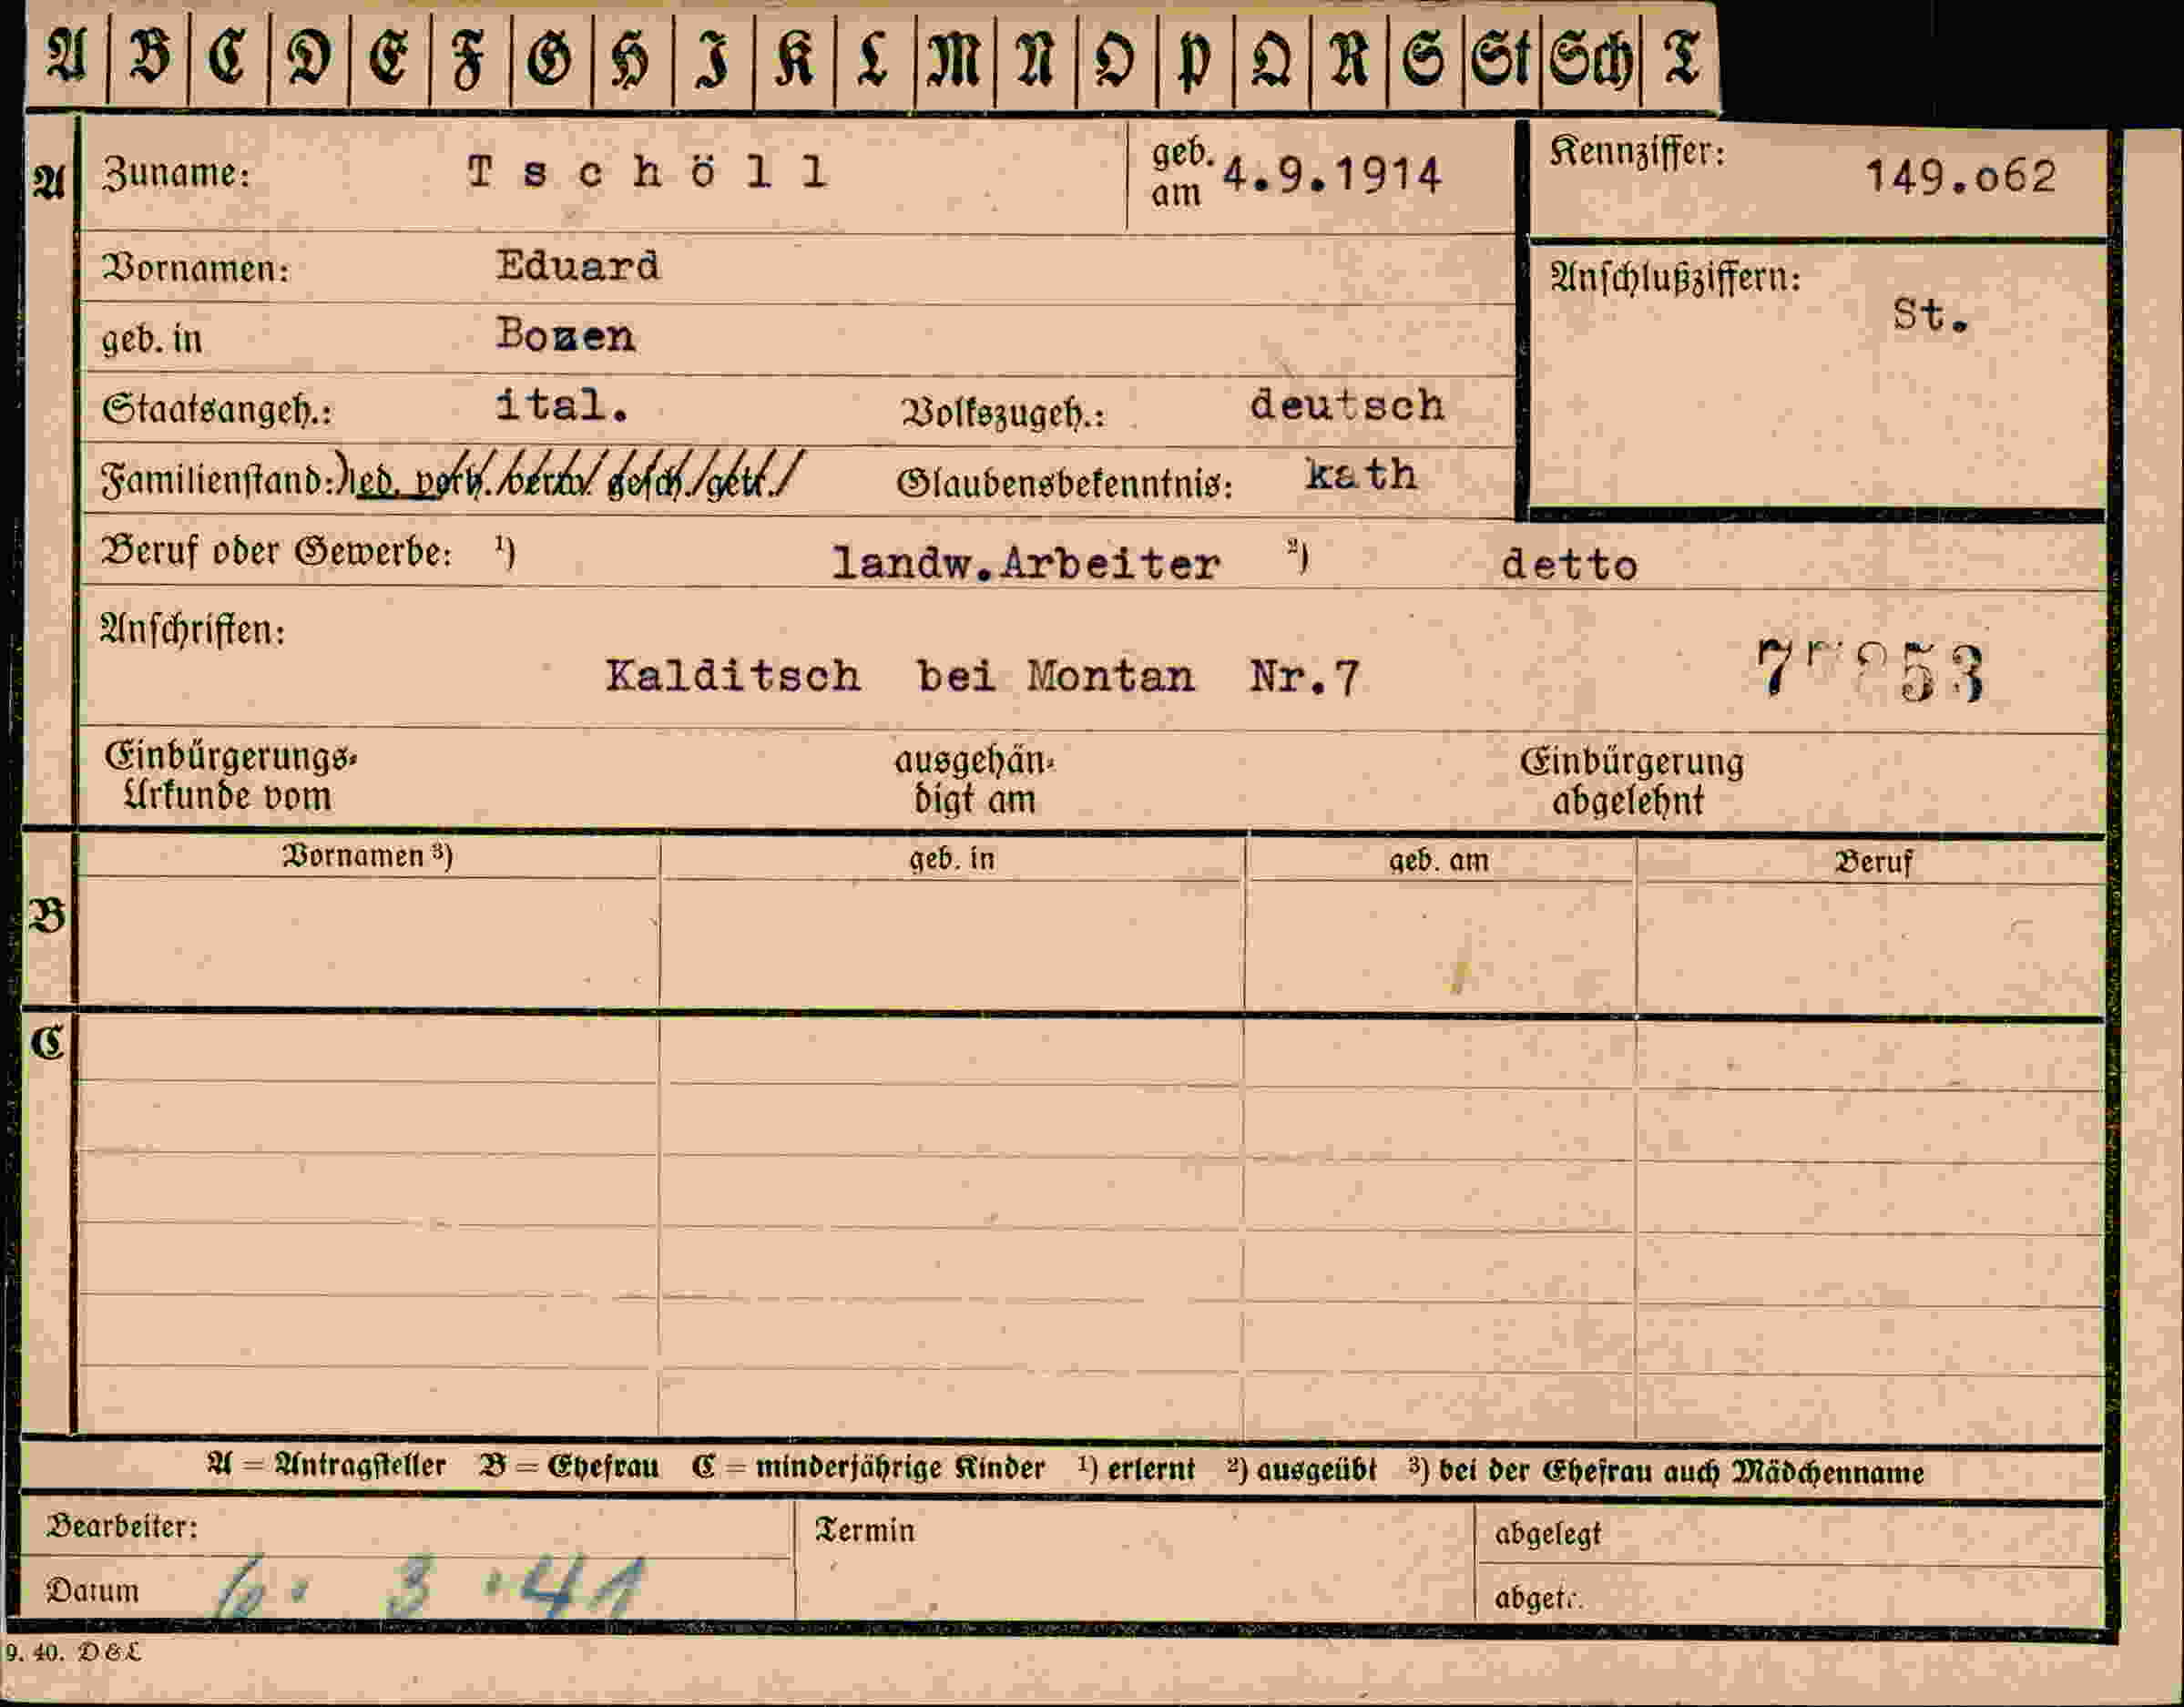 A B C D E F G H I K L M N O P Q R S St Sch T
A Zuname: Tschöll geb. am 4.9.1914 Kennziffer: 149.o62
Vornamen: Eduard Anschlußziffern: St.
geb. in Bozen
Staatsangeh.: ital. Volkszugeh.: deutsch
Familienstand: led. verh./verw./gesch./getr./ Glaubensbekenntnis: kath
Beruf oder Gewerbe: ¹) landw.Arbeiter ²) detto
Anschriften:
Kalditsch bei Montan Nr.7
Einbürgerungs- ausgehän- Einbürgerung
Urkunde vom digt am abgelehnt
Vornamen ³) geb. in geb. am Beruf
B
C
A = Antragsteller B = Ehefrau C = minderjährige Kinder ¹) erlernt ²) ausgeübt ³) bei der Ehefrau auch Mädchenname
Bearbeiter: Termin abgelegt
Datum 6. 3. 41 abgetr.
9. 40. D&L